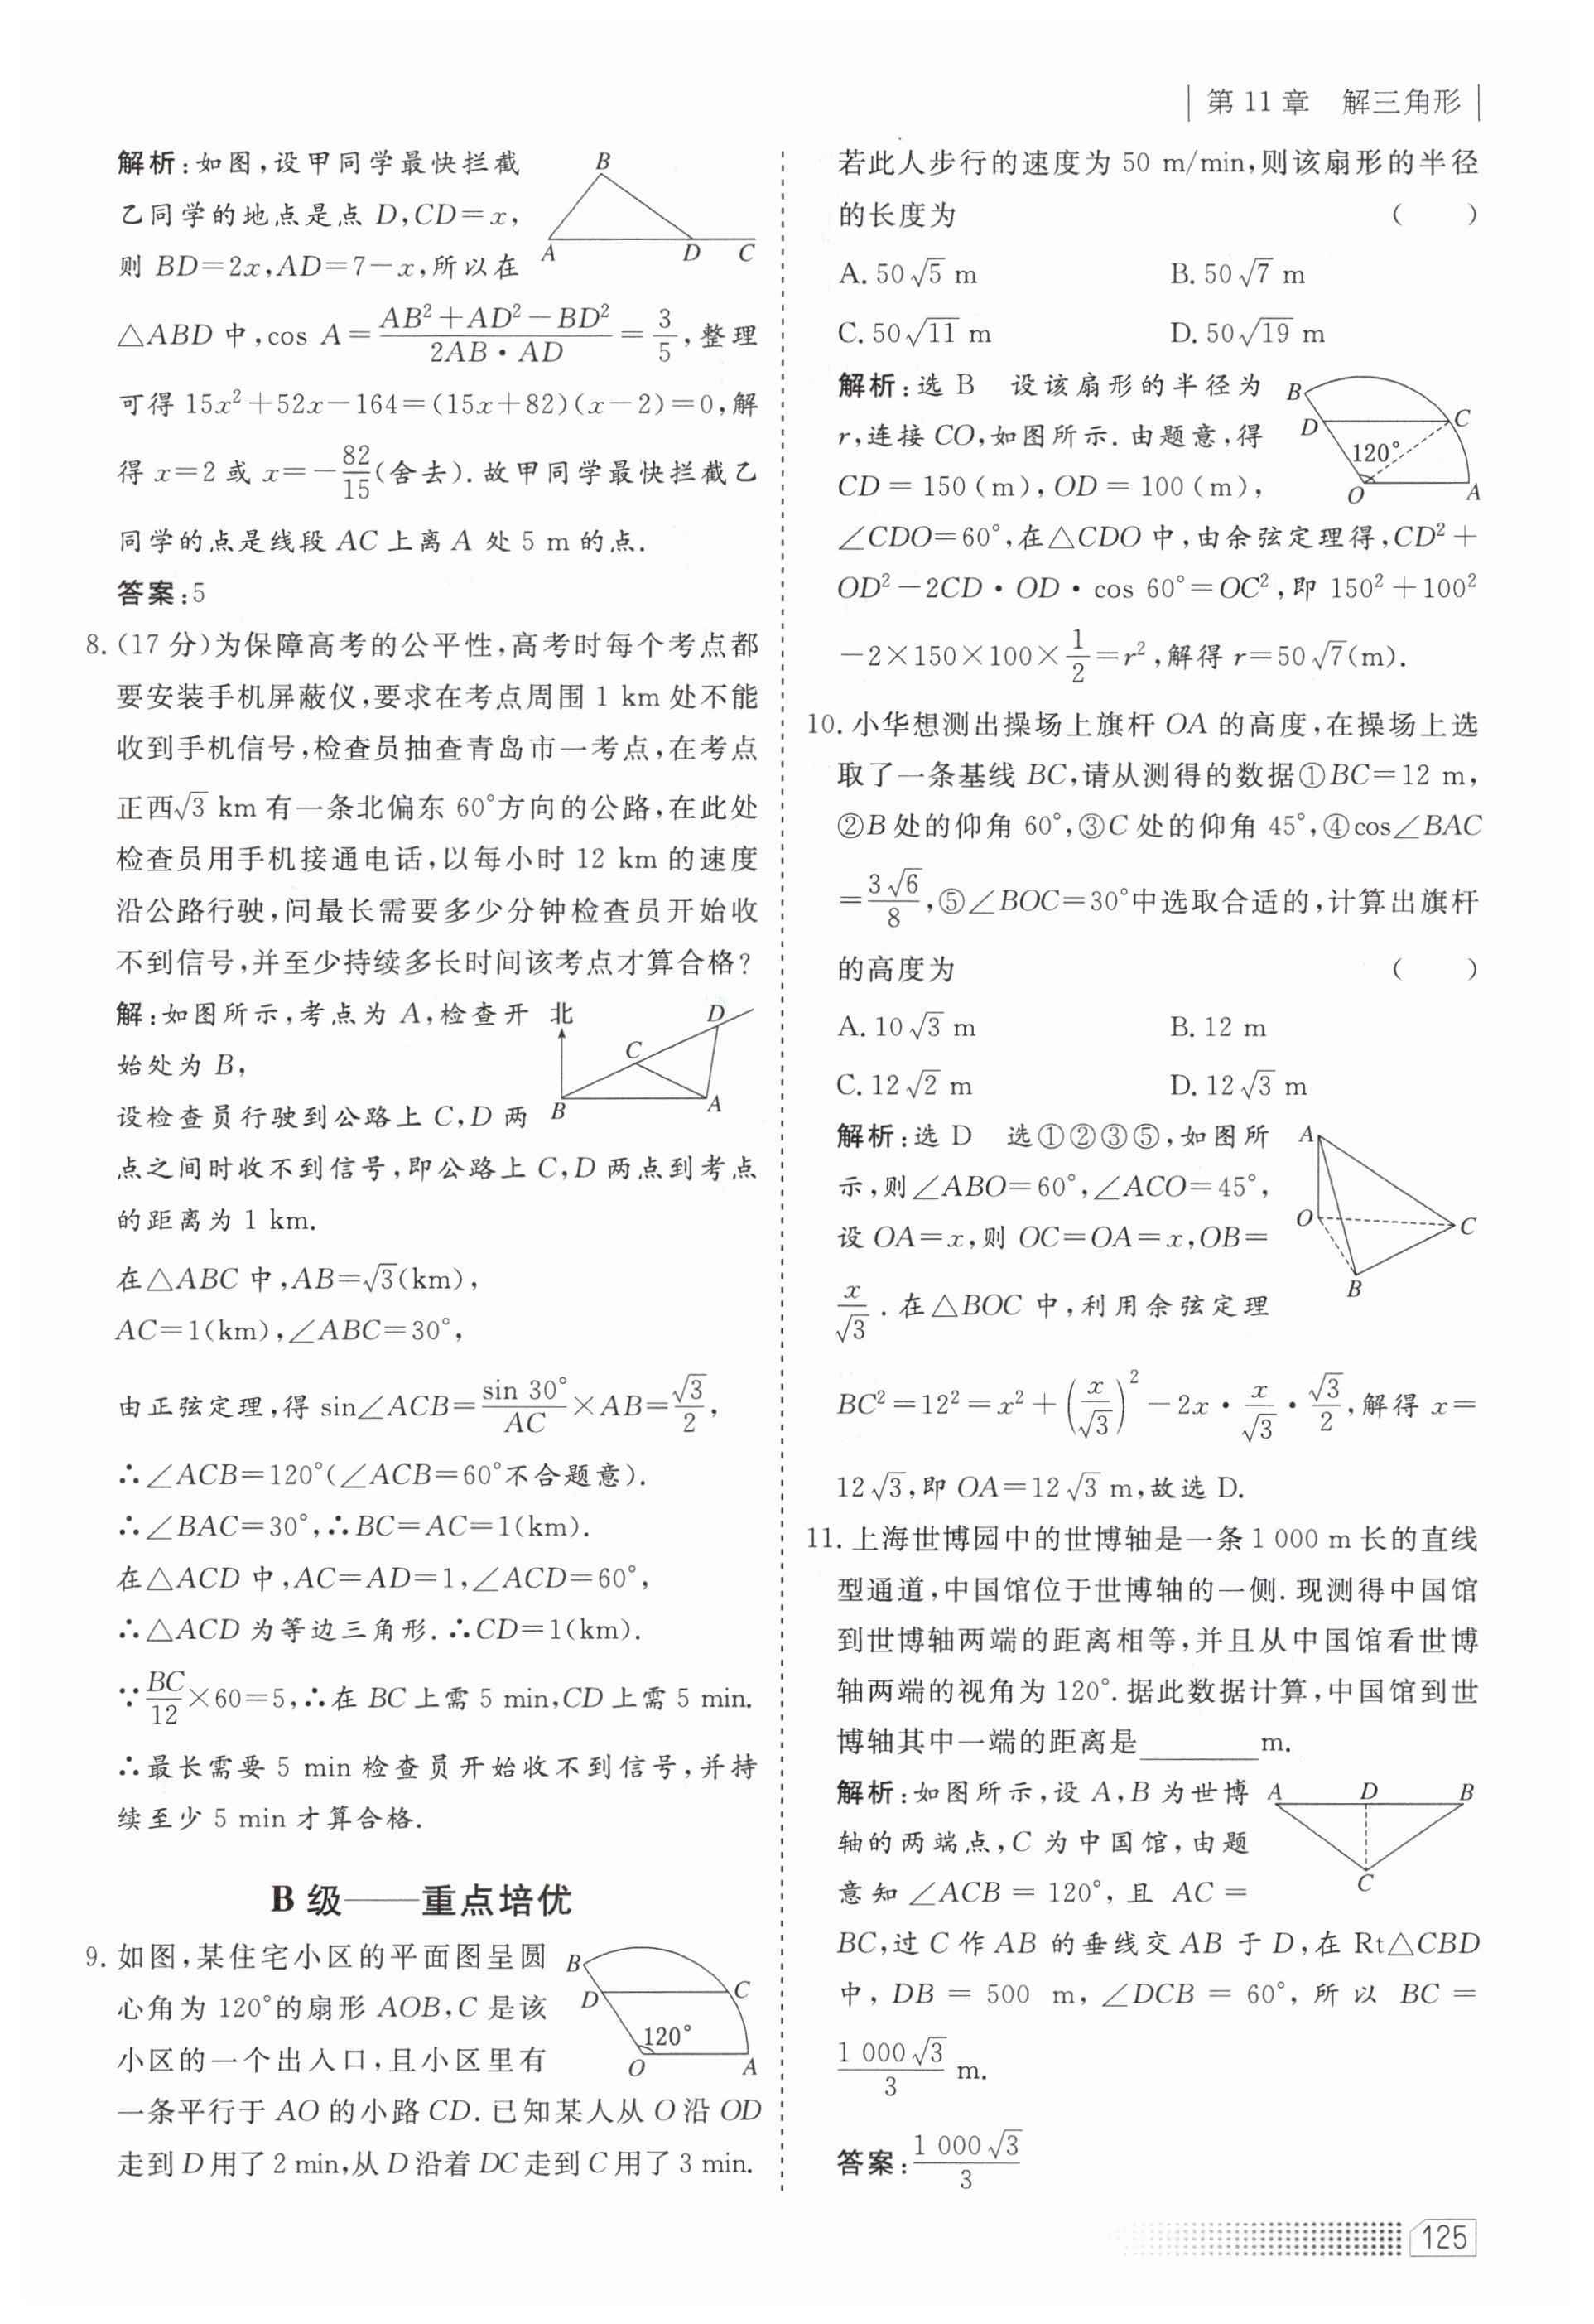 第 11 章　解三角形
解析:如图,设甲同学最快拦截
乙同学的地点是点 D,CD=x,
则 BD=2x,AD=7-x,所以在
△ABD 中,cos A=\frac{AB²+AD²-BD²}{2AB·AD}=\frac{3}{5},整理
可得 15x²+52x-164=(15x+82)(x-2)=0,解
得 x=2 或 x=-\frac{82}{15}(舍去).故甲同学最快拦截乙
同学的点是线段 AC 上离 A 处 5 m 的点.
B
A
D
C
答案:5
8.(17 分)为保障高考的公平性,高考时每个考点都
要安装手机屏蔽仪,要求在考点周围 1 km 处不能
收到手机信号,检查员抽查青岛市一考点,在考点
正西√3 km 有一条北偏东 60°方向的公路,在此处
检查员用手机接通电话,以每小时 12 km 的速度
沿公路行驶,问最长需要多少分钟检查员开始收
不到信号,并至少持续多长时间该考点才算合格?
解:如图所示,考点为 A,检查开
始处为 B,
设检查员行驶到公路上 C,D 两
点之间时收不到信号,即公路上 C,D 两点到考点
的距离为 1 km.
北
D
C
B
A
在△ABC 中,AB=√3(km),
AC=1(km),∠ABC=30°,
由正弦定理,得 sin∠ACB=\frac{sin 30°}{AC}×AB=\frac{√3}{2},
∴∠ACB=120°(∠ACB=60°不合题意).
∴∠BAC=30°,∴BC=AC=1(km).
在△ACD 中,AC=AD=1,∠ACD=60°,
∴△ACD 为等边三角形.∴CD=1(km).
∵\frac{BC}{12}×60=5,∴在 BC 上需 5 min,CD 上需 5 min.
∴最长需要 5 min 检查员开始收不到信号,并持
续至少 5 min 才算合格.
B 级——重点培优
9. 如图,某住宅小区的平面图呈圆
心角为 120°的扇形 AOB,C 是该
小区的一个出入口,且小区里有
一条平行于 AO 的小路 CD.已知某人从 O 沿 OD
走到 D 用了 2 min,从 D 沿着 DC 走到 C 用了 3 min.
B
D
C
120°
O
A
若此人步行的速度为 50 m/min,则该扇形的半径
的长度为 (　　)
A. 50√5 m　B. 50√7 m
C. 50√11 m　D. 50√19 m
解析:选 B　设该扇形的半径为
r,连接 CO,如图所示.由题意,得
CD=150(m),OD=100(m),
∠CDO=60°,在△CDO 中,由余弦定理得,CD²+
OD²-2CD·OD·cos 60°=OC²,即 150²+100²
-2×150×100×\frac{1}{2}=r²,解得 r=50√7(m).
B
D
C
120°
O
A
10. 小华想测出操场上旗杆 OA 的高度,在操场上选
取了一条基线 BC,请从测得的数据①BC=12 m,
②B 处的仰角 60°,③C 处的仰角 45°,④cos∠BAC
=\frac{3√6}{8},⑤∠BOC=30°中选取合适的,计算出旗杆
的高度为 (　　)
A. 10√3 m　B. 12 m
C. 12√2 m　D. 12√3 m
解析:选 D　选①②③⑤,如图所
示,则∠ABO=60°,∠ACO=45°,
设 OA=x,则 OC=OA=x,OB=
\frac{x}{√3}.在△BOC 中,利用余弦定理
BC²=12²=x²+(\frac{x}{√3})²-2x·\frac{x}{√3}·\frac{√3}{2},解得 x=
12√3,即 OA=12√3 m,故选 D.
A
O
C
B
11. 上海世博园中的世博轴是一条 1 000 m 长的直线
型通道,中国馆位于世博轴的一侧.现测得中国馆
到世博轴两端的距离相等,并且从中国馆看世博
轴两端的视角为 120°.据此数据计算,中国馆到世
博轴其中一端的距离是________m.
解析:如图所示,设 A,B 为世博
轴的两端点,C 为中国馆,由题
意知∠ACB=120°,且 AC=
BC,过 C 作 AB 的垂线交 AB 于 D,在 Rt△CBD
中,DB=500 m,∠DCB=60°,所以 BC=
\frac{1 000√3}{3} m.
A
D
B
C
答案:\frac{1 000√3}{3}
125